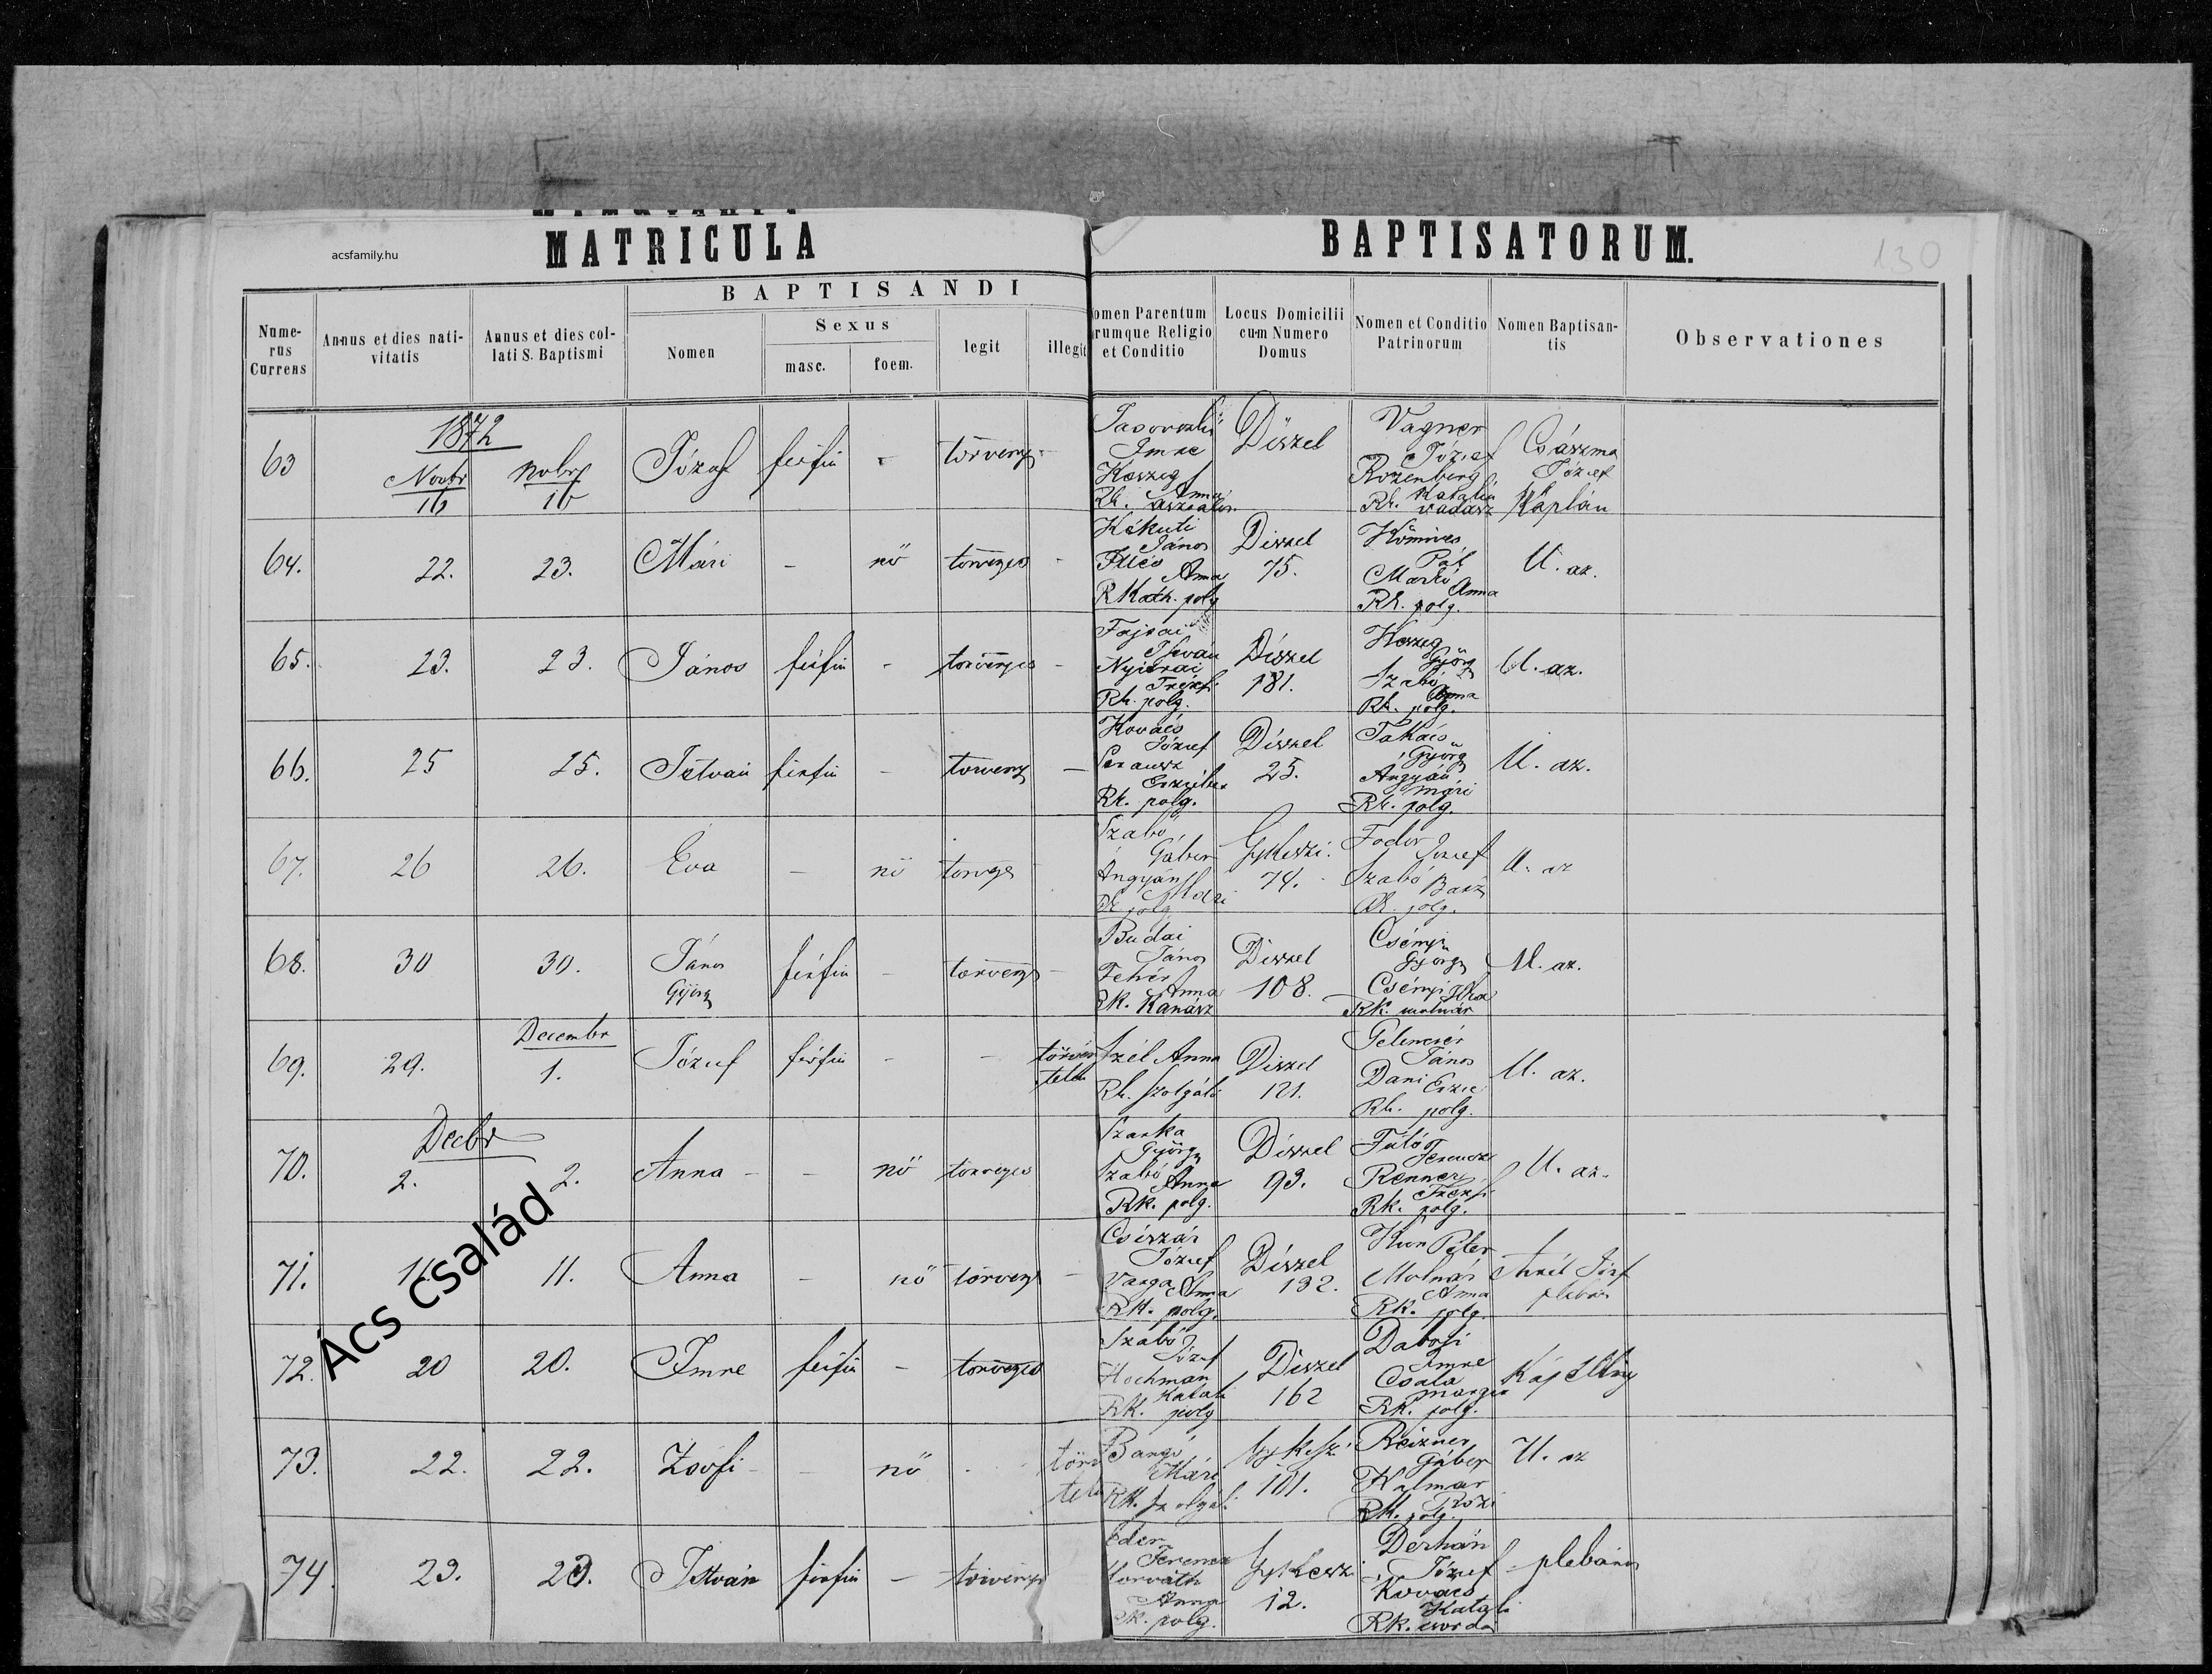 MATRICULA
BAPTISATORUM.
acsfamily.hu
130
BAPTISANDI
Nume-
rus
Currens
Annus et dies nati-
vitatis
Annus et dies col-
lati S. Baptismi
Nomen
Sexus
masc.
foem.
legit
illegit
omen Parentum
rumque Religio
et Conditio
Locus Domicilii
cum Numero
Domus
Nomen et Conditio
Patrinorum
Nomen Baptisan-
tis
Observationes
63
1872
Novbr
16
Novbr
16
József
férfiu
-
törvény
Imre
Anna
Díszel
Vagner
József
Rozenberg
Katalin
Rk.
József
Káplán
64.
22.
23.
Mári
-
nő
törvényes
-
Kékuti
János
Anna
R Kath. polg
Díszel
75.
Kömives
Pál
Markó
Anna
Rk. polg.
U. az.
65.
23.
23.
János
férfiu
-
törvényes
-
István
Rk. polg.
Díszel
181.
Györg
Szabó
Anna
Rk. polg.
U. az.
66.
25
25.
István
férfiu
-
törvény
-
Kovács
József
Rk. polg.
Díszel
25.
Takács
Györg
Angyán
Mári
Rk. polg.
U. az.
67.
26
26.
Éva
-
nő
Szabó
Gábor
Angyán
Mári
Rk. polg
Gykeszi.
74.
Fodor
József
Szabó
Rk. polg.
U. az
68.
30
30.
János
Györg
férfiu
-
törvény
-
Budai
János
Fehér
Anna
Rk. Kanász
Díszel
108.
Csényi
Györg
Csényi
Rk. molnár
U. az.
69.
29.
Decembr
1.
József
férfiu
-
-
törvény
telen
Szél Anna
Rk. szolgáló
Díszel
121.
Gelencsér
János
Dani
Erzse
Rk. polg.
U. az.
70.
Decbr
2.
2.
Anna
-
-
nő
törvényes
Szarka
György
Szabó
Anna
Rk. polg.
Díszel
93.
Fülö
Ferencz
Renner
Rk. polg.
U. az.
71.
11.
11.
Anna
-
nő
törvény
-
Csiszár
József
Varga
Anna
Rk. polg.
Díszel
132.
Kun Péter
Molnár
Anna
Rk. polg
plebán
72.
20
20.
Imre
férfiu
-
törvényes
Szabó
József
Hochman
Katali
Rk. polg
Díszel
162
Imre
Csala
Rk. polg.
73.
22.
22.
Zsófi
-
-
nő
Mári
Rk. szolgáló
Gykeszi
101.
Reizner
Gábor
Kalmar
Rozi
Rk. polg.
U. az
74.
23.
23.
István
férfiu
-
törvény
Eder
Ferencz
Horváth
Anna
Rk. polg.
Gykeszi
12.
József
Kovács
Katali
Rk.
plebános
Ács család